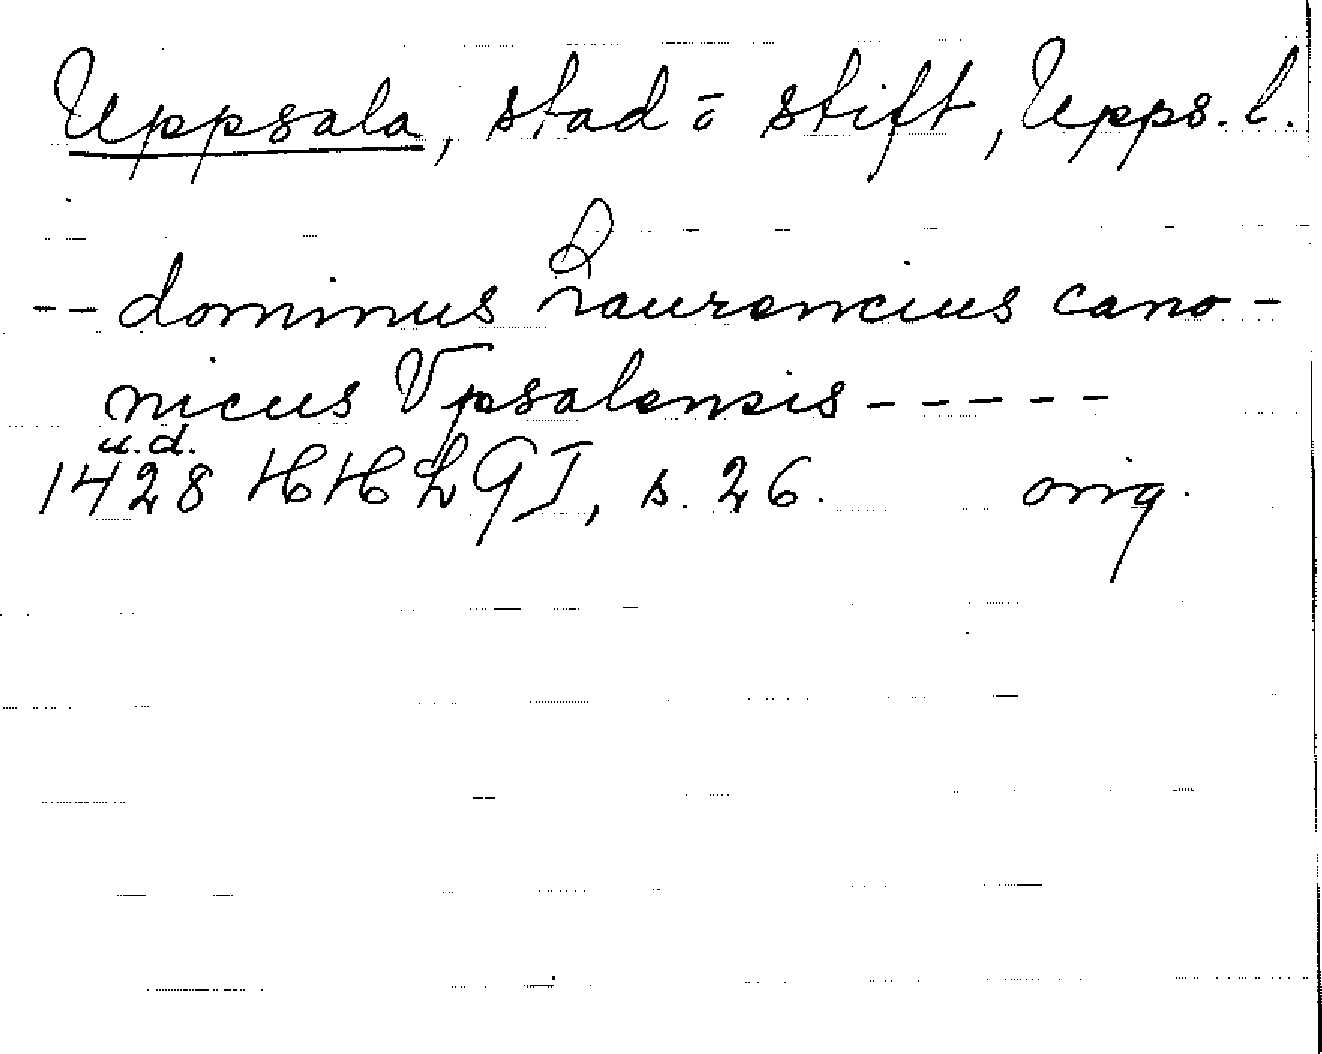 Uppsala, stad o stift, Upps. l.
-- dominus Laurencius cano-
nicus Vpsalensis -----
u.d.
1428 HHLGI, s. 26. orig.